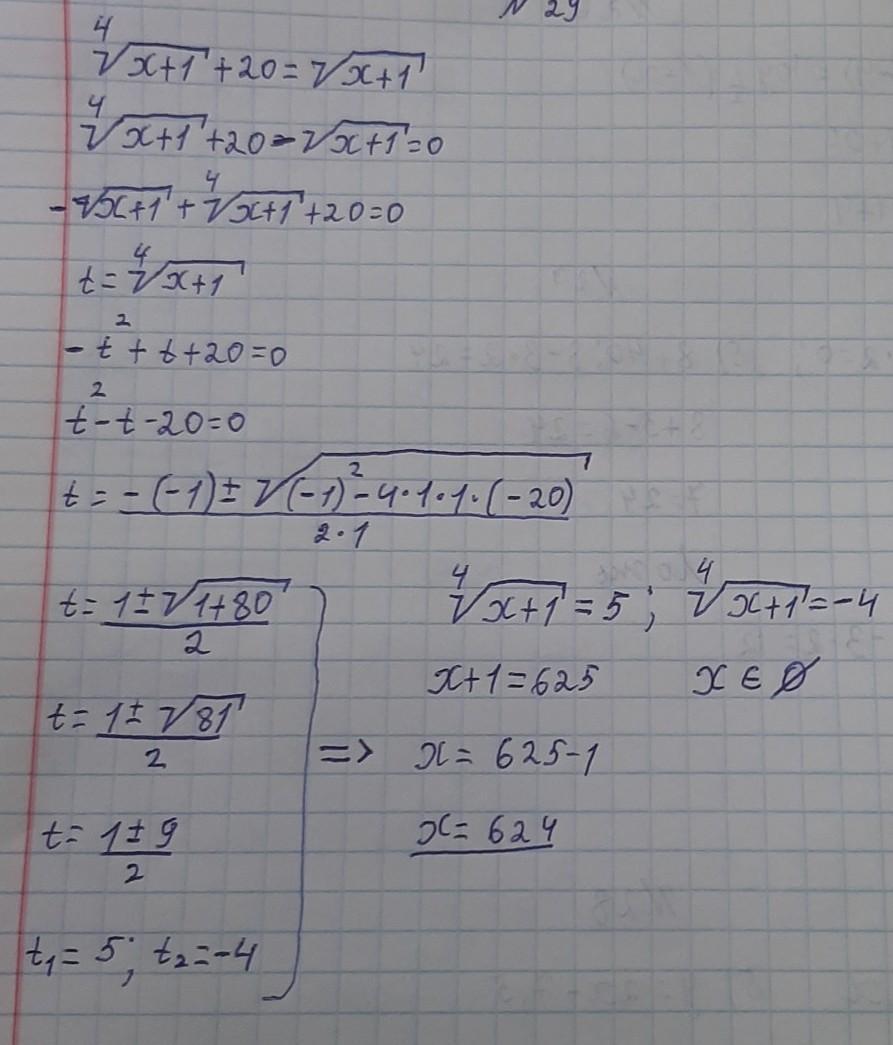 N 29
⁴√x+1 + 20 = √x+1
⁴√x+1 + 20 - √x+1 = 0
-√x+1 + ⁴√x+1 + 20 = 0
t = ⁴√x+1
-t² + t + 20 = 0
t² - t - 20 = 0
t = -(-1) ± √(-1)² - 4·1·1·(-20) / 2·1
t = 1 ± √1+80 / 2
t = 1 ± √81 / 2
t = 1 ± 9 / 2
t₁ = 5; t₂ = -4
=>
⁴√x+1 = 5; ⁴√x+1 = -4
x+1 = 625 x ∈ ∅
x = 625-1
x = 624